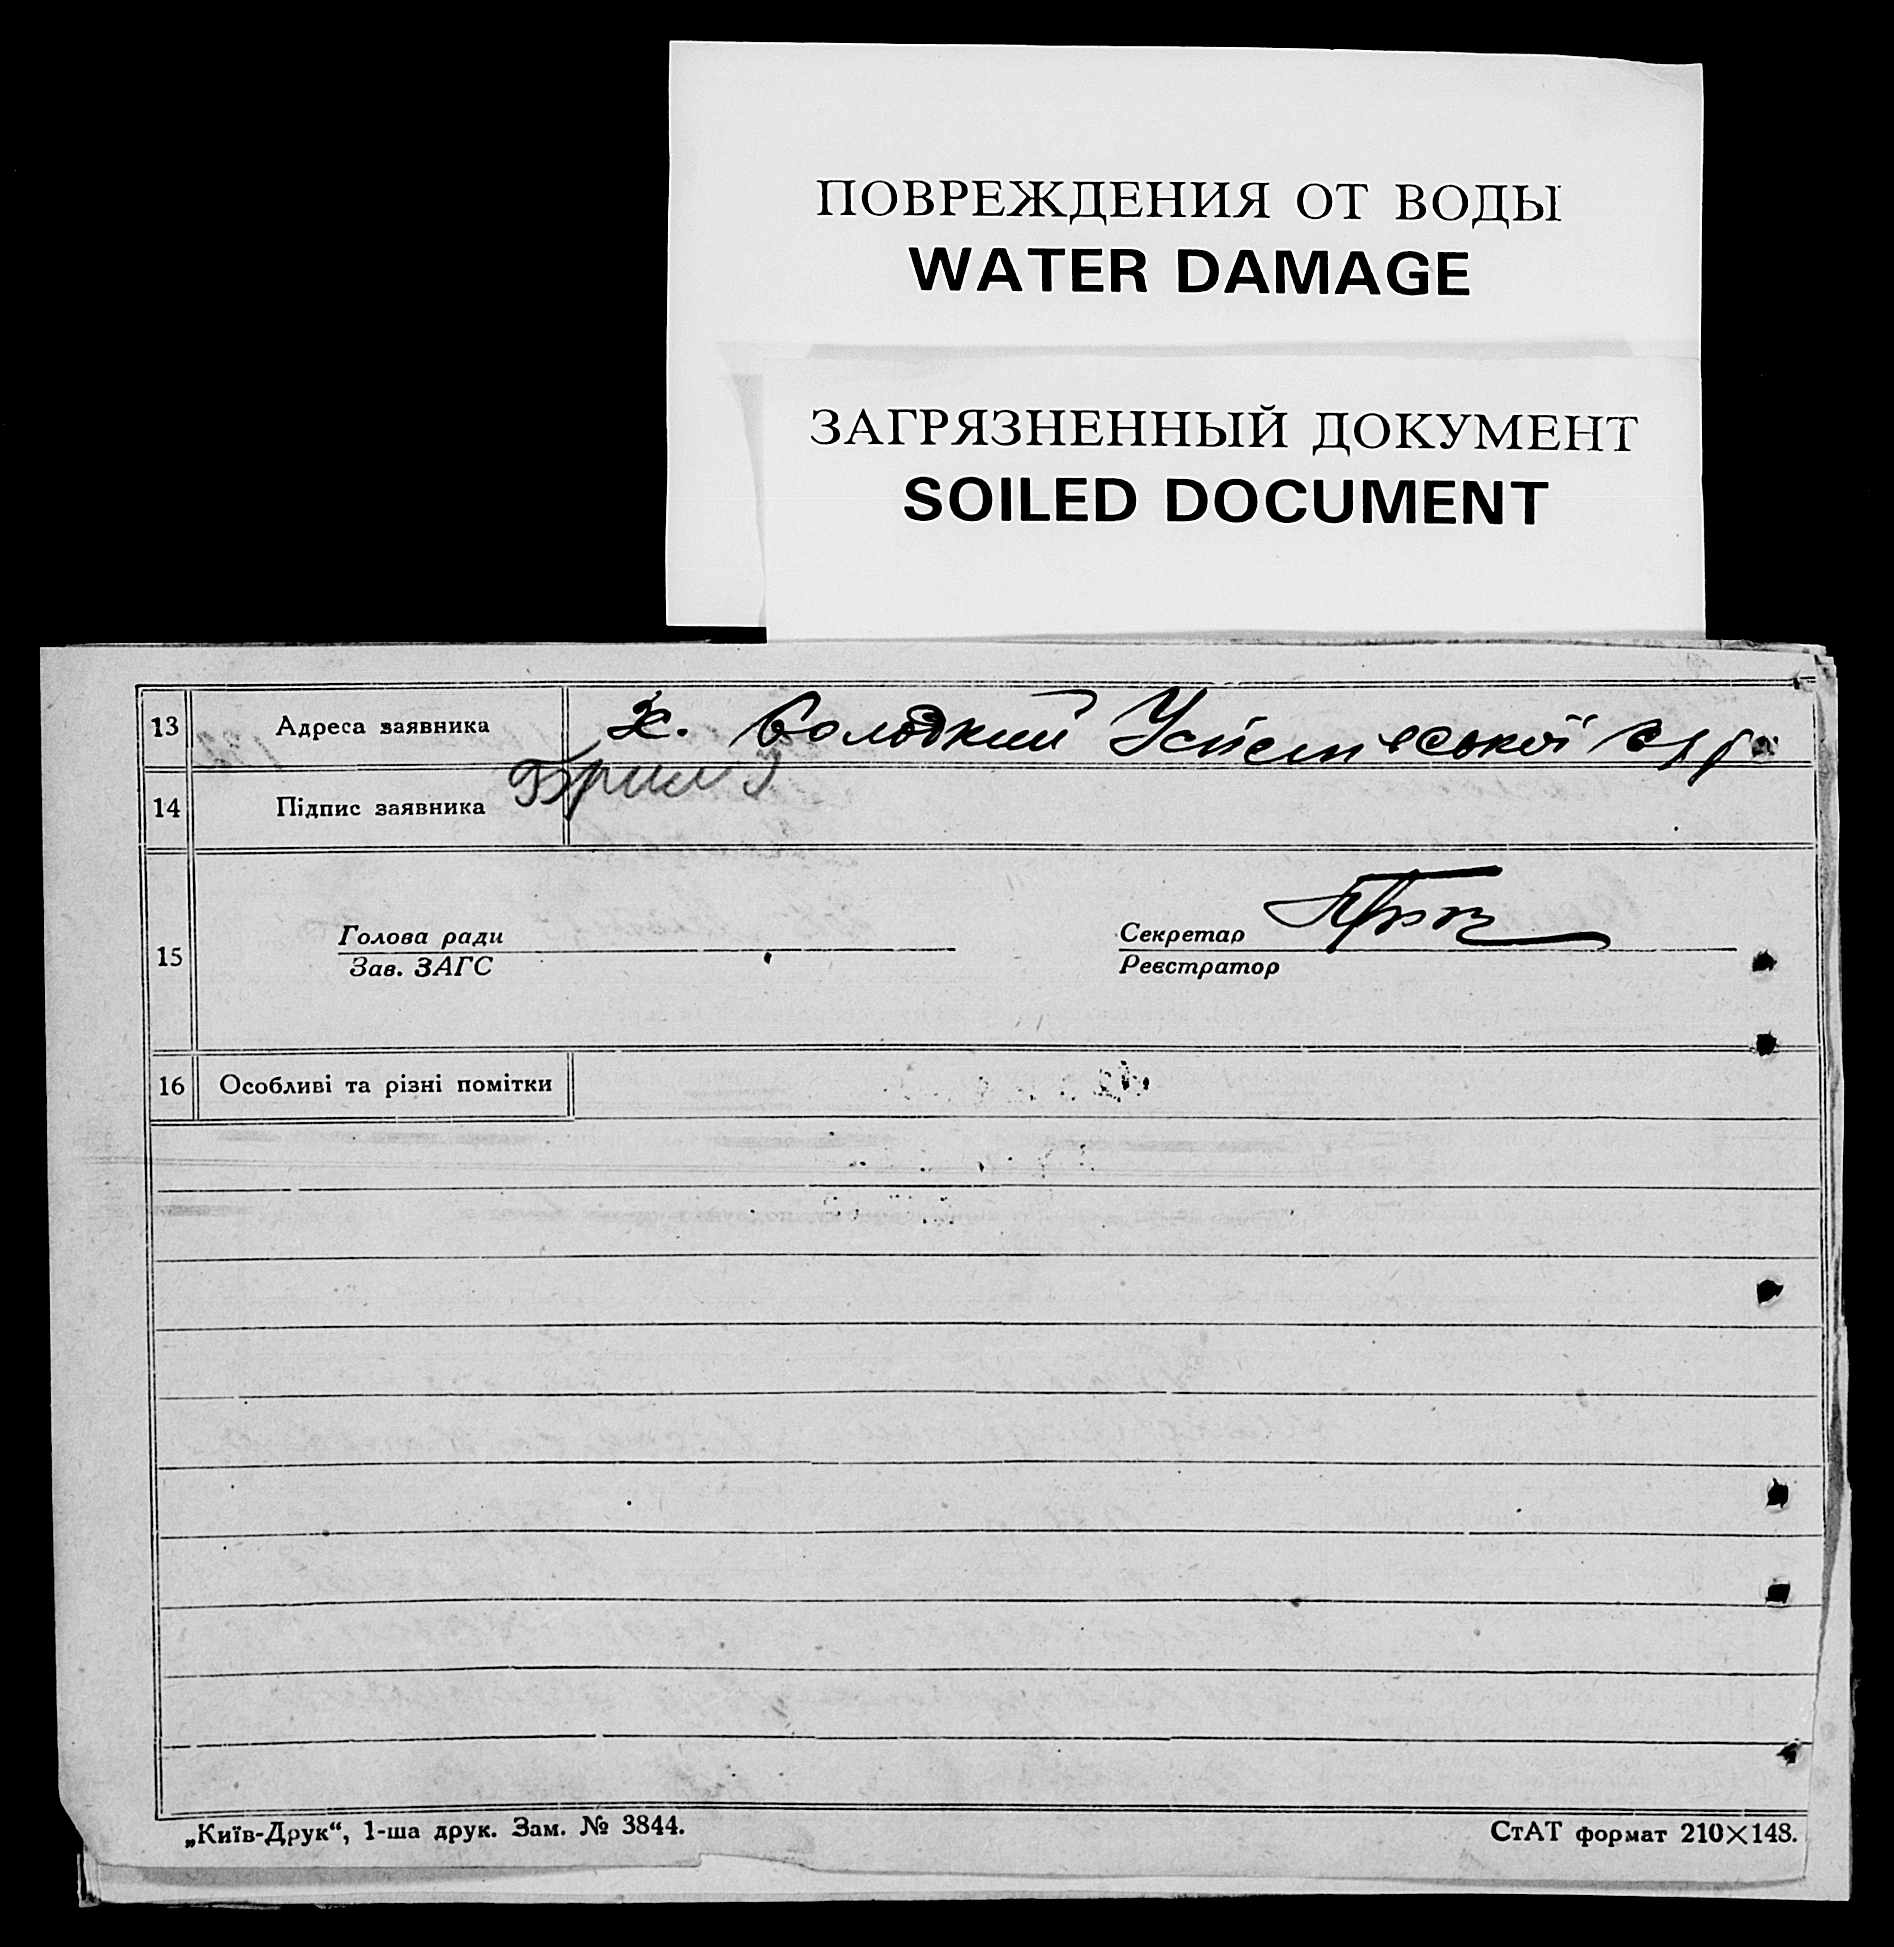 ПОВРЕЖДЕНИЯ ОТ ВОДЫ
WATER DAMAGE
ЗАГРЯЗНЕННЫЙ ДОКУМЕНТ
SOILED DOCUMENT
13 Адреса заявника х.
14 Підпис заявника
15
Голова ради Секретар
Зав. ЗАГС Реєстратор
16 Особливі та різні помітки
„Київ-Друк“, 1-ша друк. Зам. № 3844. СтАТ формат 210×148.